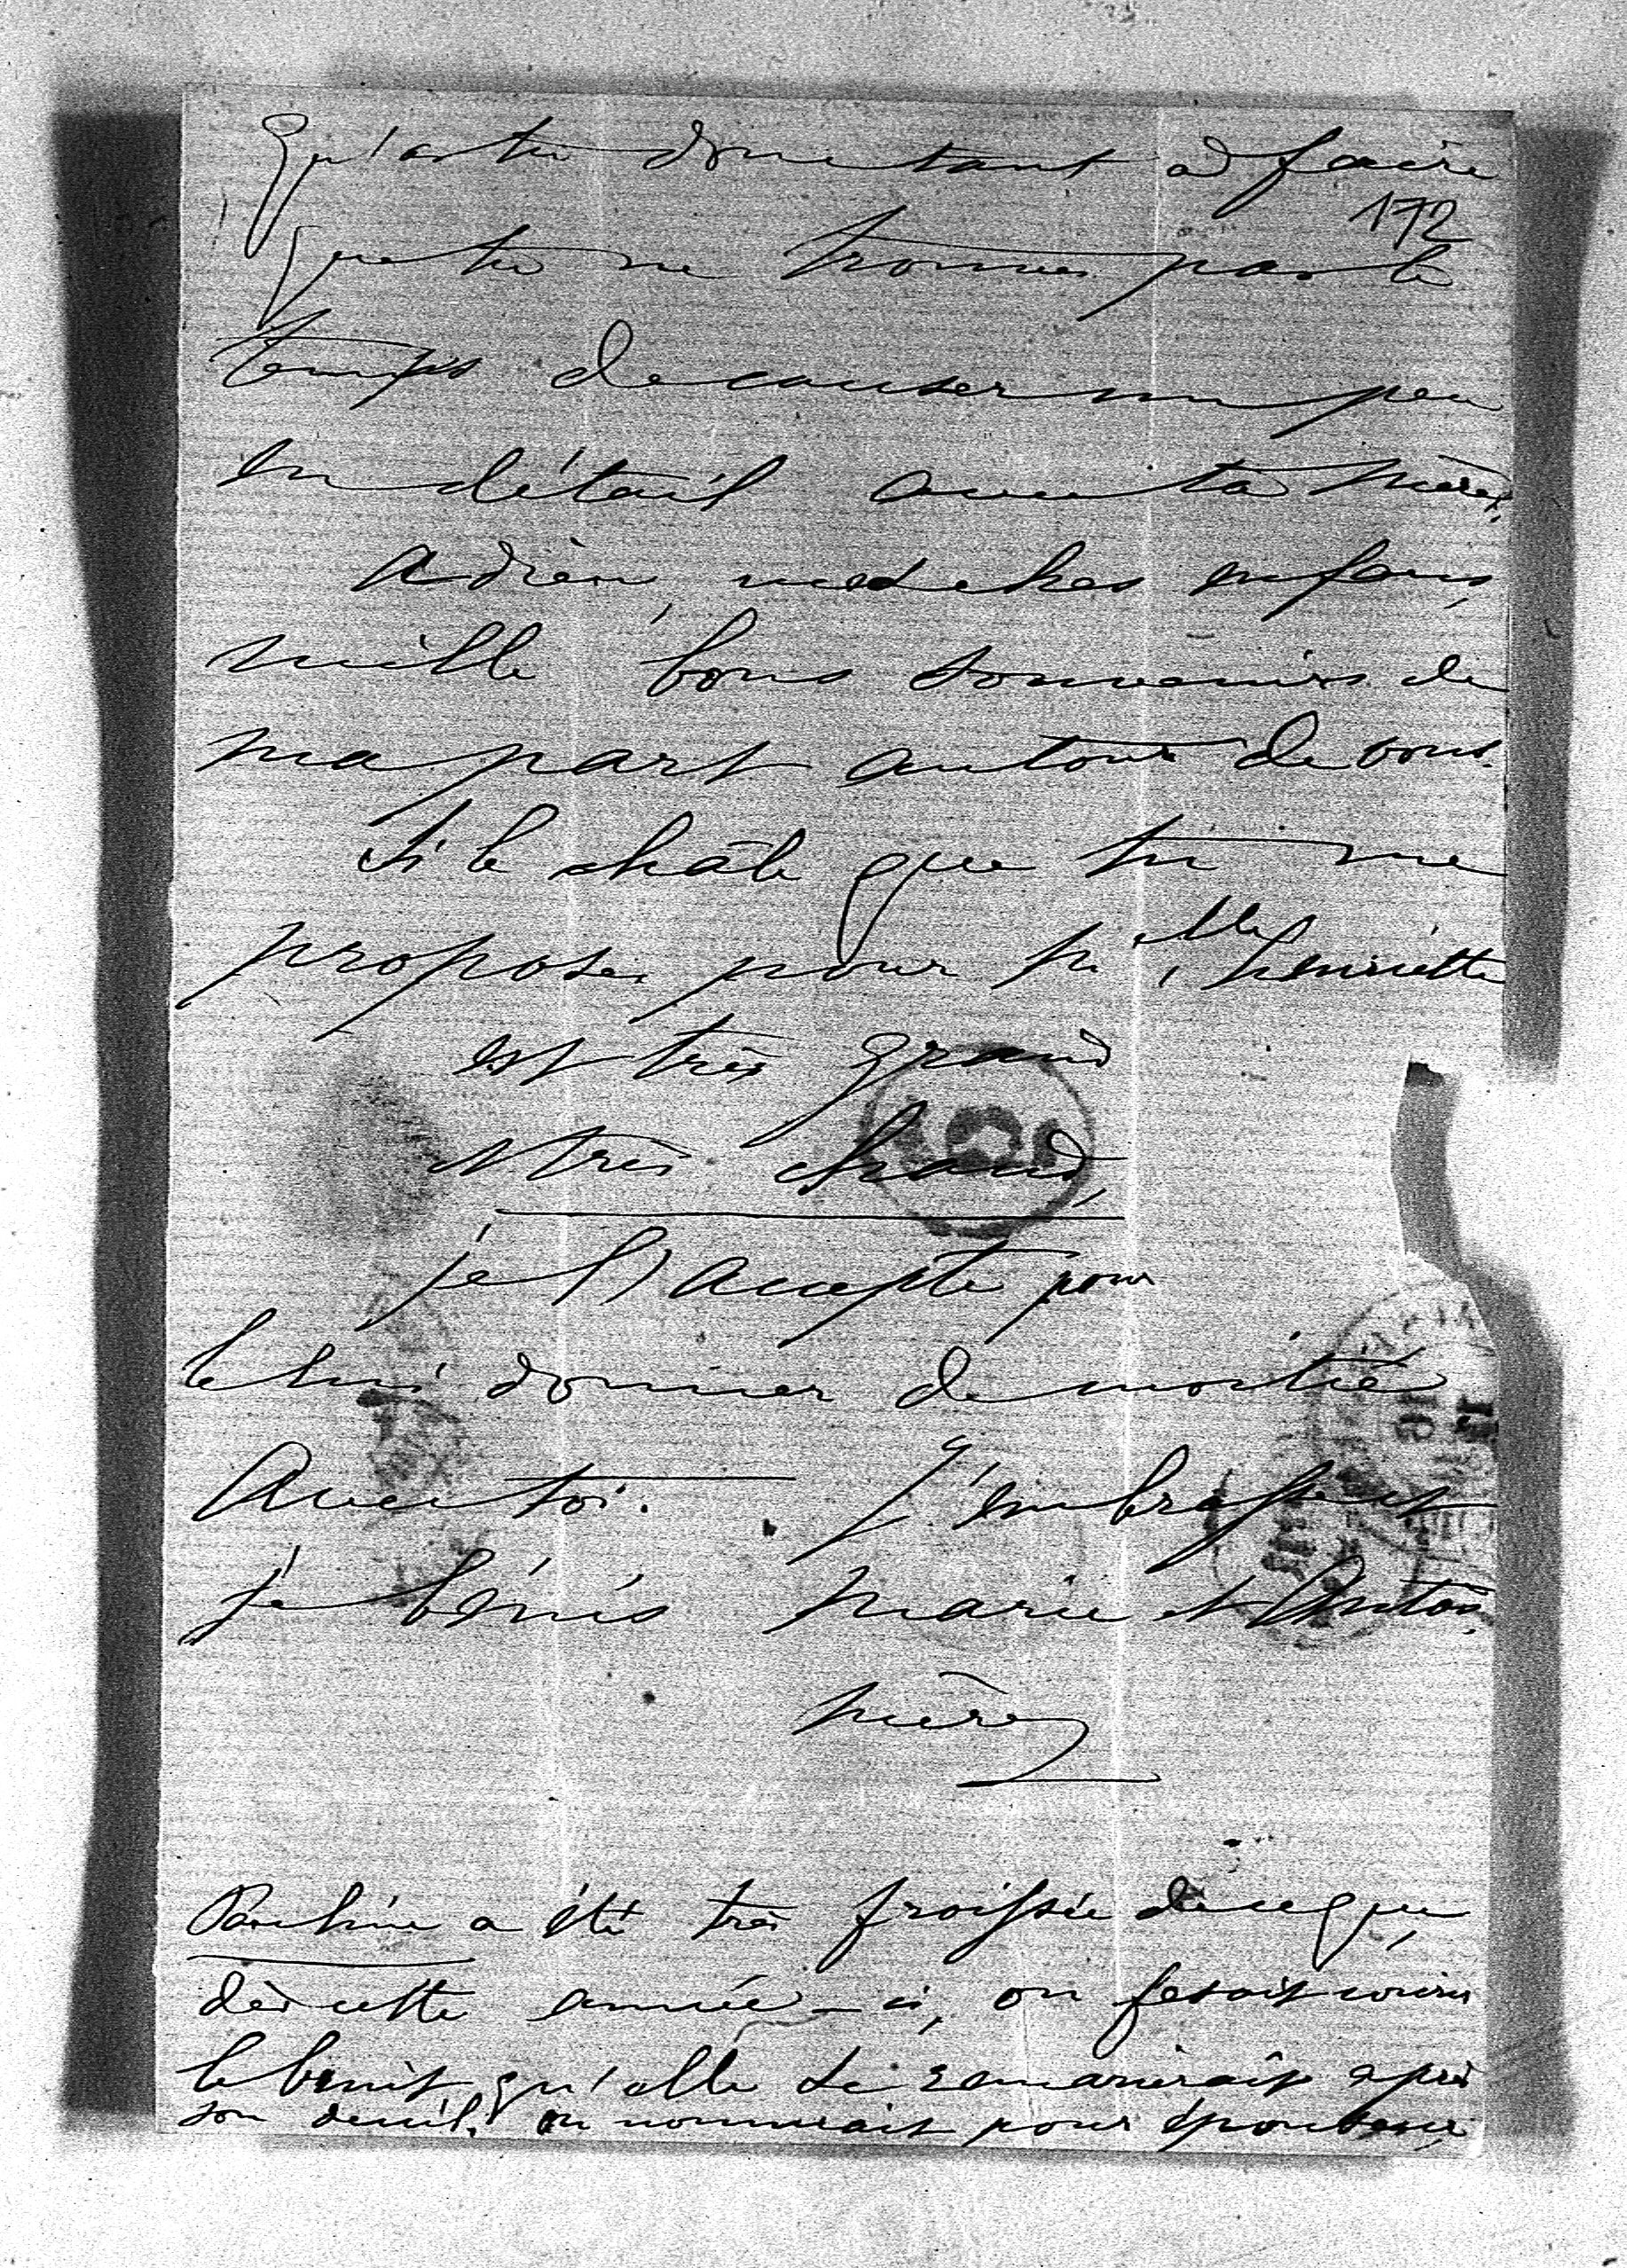 Qu'as tu donc tant à faire
172
que tu ne trouves pas le
temps de causer un peu
en détail avec ta mère.
Adieu, mes chers enfans,
mille bons souvenirs de
ma part autour de vous.
Si le châle que tu me
proposes pour Melle henriette
est très grand
et très chaud,
je l'accepte pour
le lui donner de moitié
avec toi. J'embrasse et
je bénis Marie et Anton
mère
Pauline a été très froissée de ce que,
dès cette année-ci, on fesait courir
le bruit qu'elle se remarierait après
son deuil. on nommait pour épouseur,